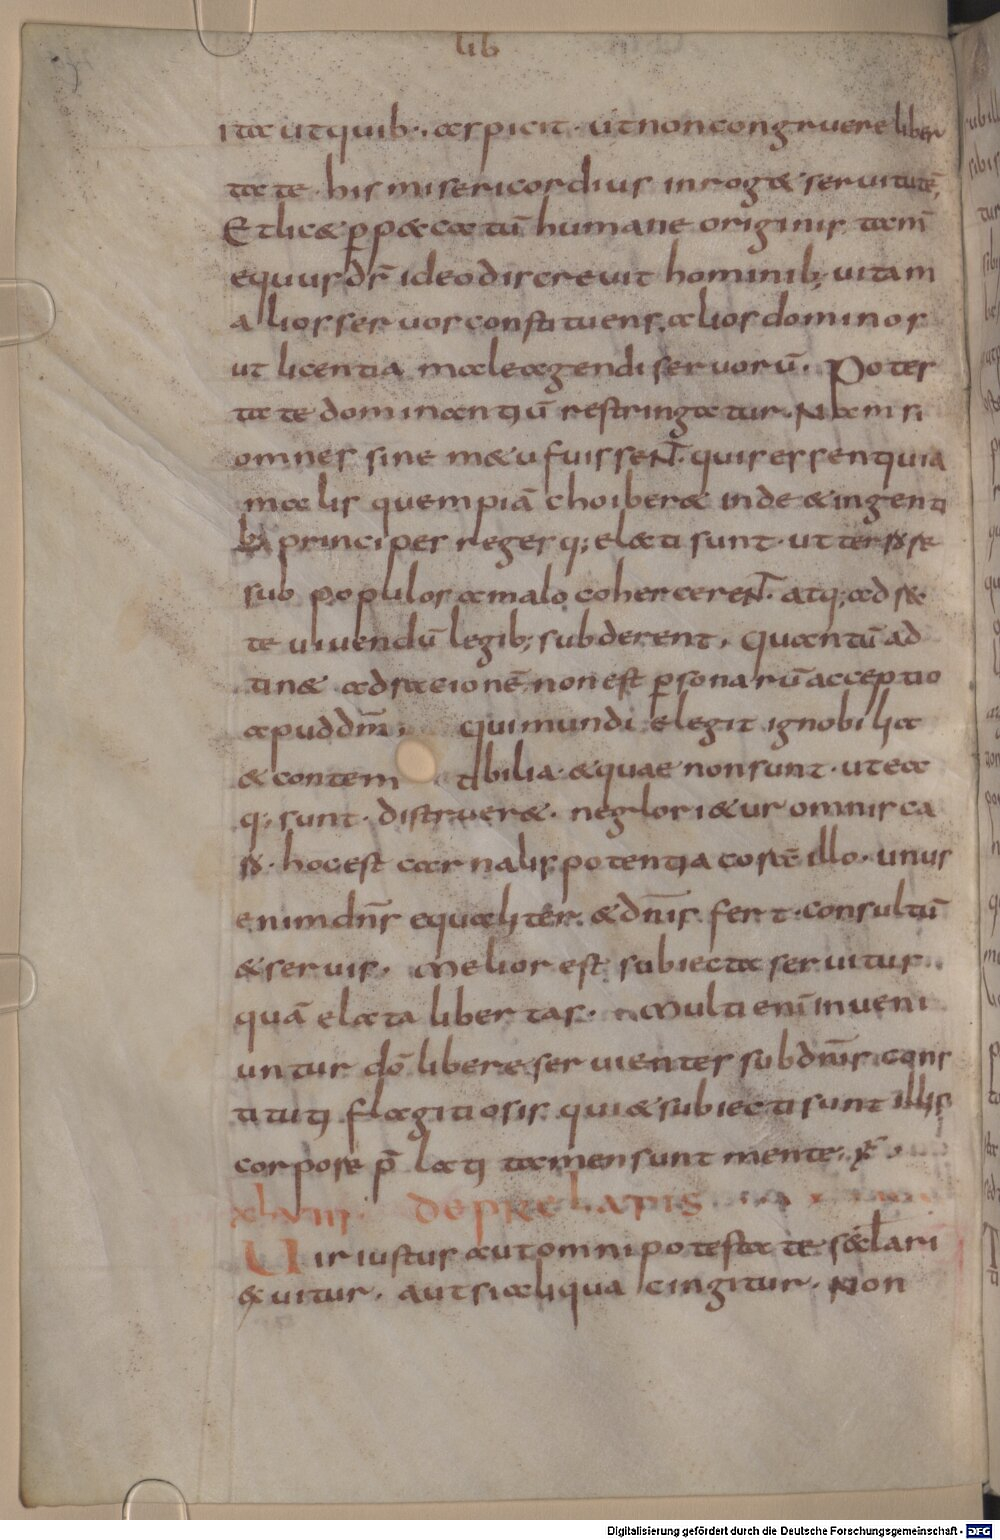 lib
ita ut quib·, aspicit · ut non congruere liber
tate · his misericordius inroget servitutē,
Et licet p̄ peccatū humane originis tam̄
equus ds̄ ideo discrevit hominib; vitam
alios servos constituens, alios dominos
ut licentia male agendi servorū. Potes
tate dominantiū restringatur. Nam si
omnes sine metu fuissent. quis esset qui a
malis quempiā choiberet inde et in genti
b; principes reges q; elati sunt · ut terrore
sub populos a malo cohercerent. atq; ad rec
te vivendū legib; subderent. Quantū ad
tinet ad racionē non est p̄sonarū acceptio
apud dm̄, qui mundi elegit ignobilia
& contemtibilia · & quae non sunt · ut ea
q; sunt · distrueret · ne glorietur omnis ca
ro · hoc est carnalis potentia corā illo · unus
enim dn̄s equaliter · & dn̄is fert · consultū
& servis. Melior est subiecta servitus
quā elata libertas. Multi enī inveni
untur dō libere servientes sub dn̄is cons
titutis flagitiosis qui et subiecti sunt illis
corpore p̄lati tamen sunt mente,
xlviiii de prelatis
Vir iustus aut omni potestate secłari
exuitur. aut si aliqua cingitur. Non
Digitalisierung gefördert durch die Deutsche Forschungsgemeinschaft - DFG